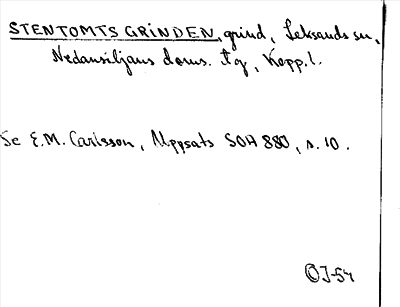 STENTOMTSGRINDEN, grind, Leksands sn,
Nedansiljans doms. tg, Kopp. l.
Se E.M. Carlsson, Uppsats SOH 880, s. 10.
OJ-54